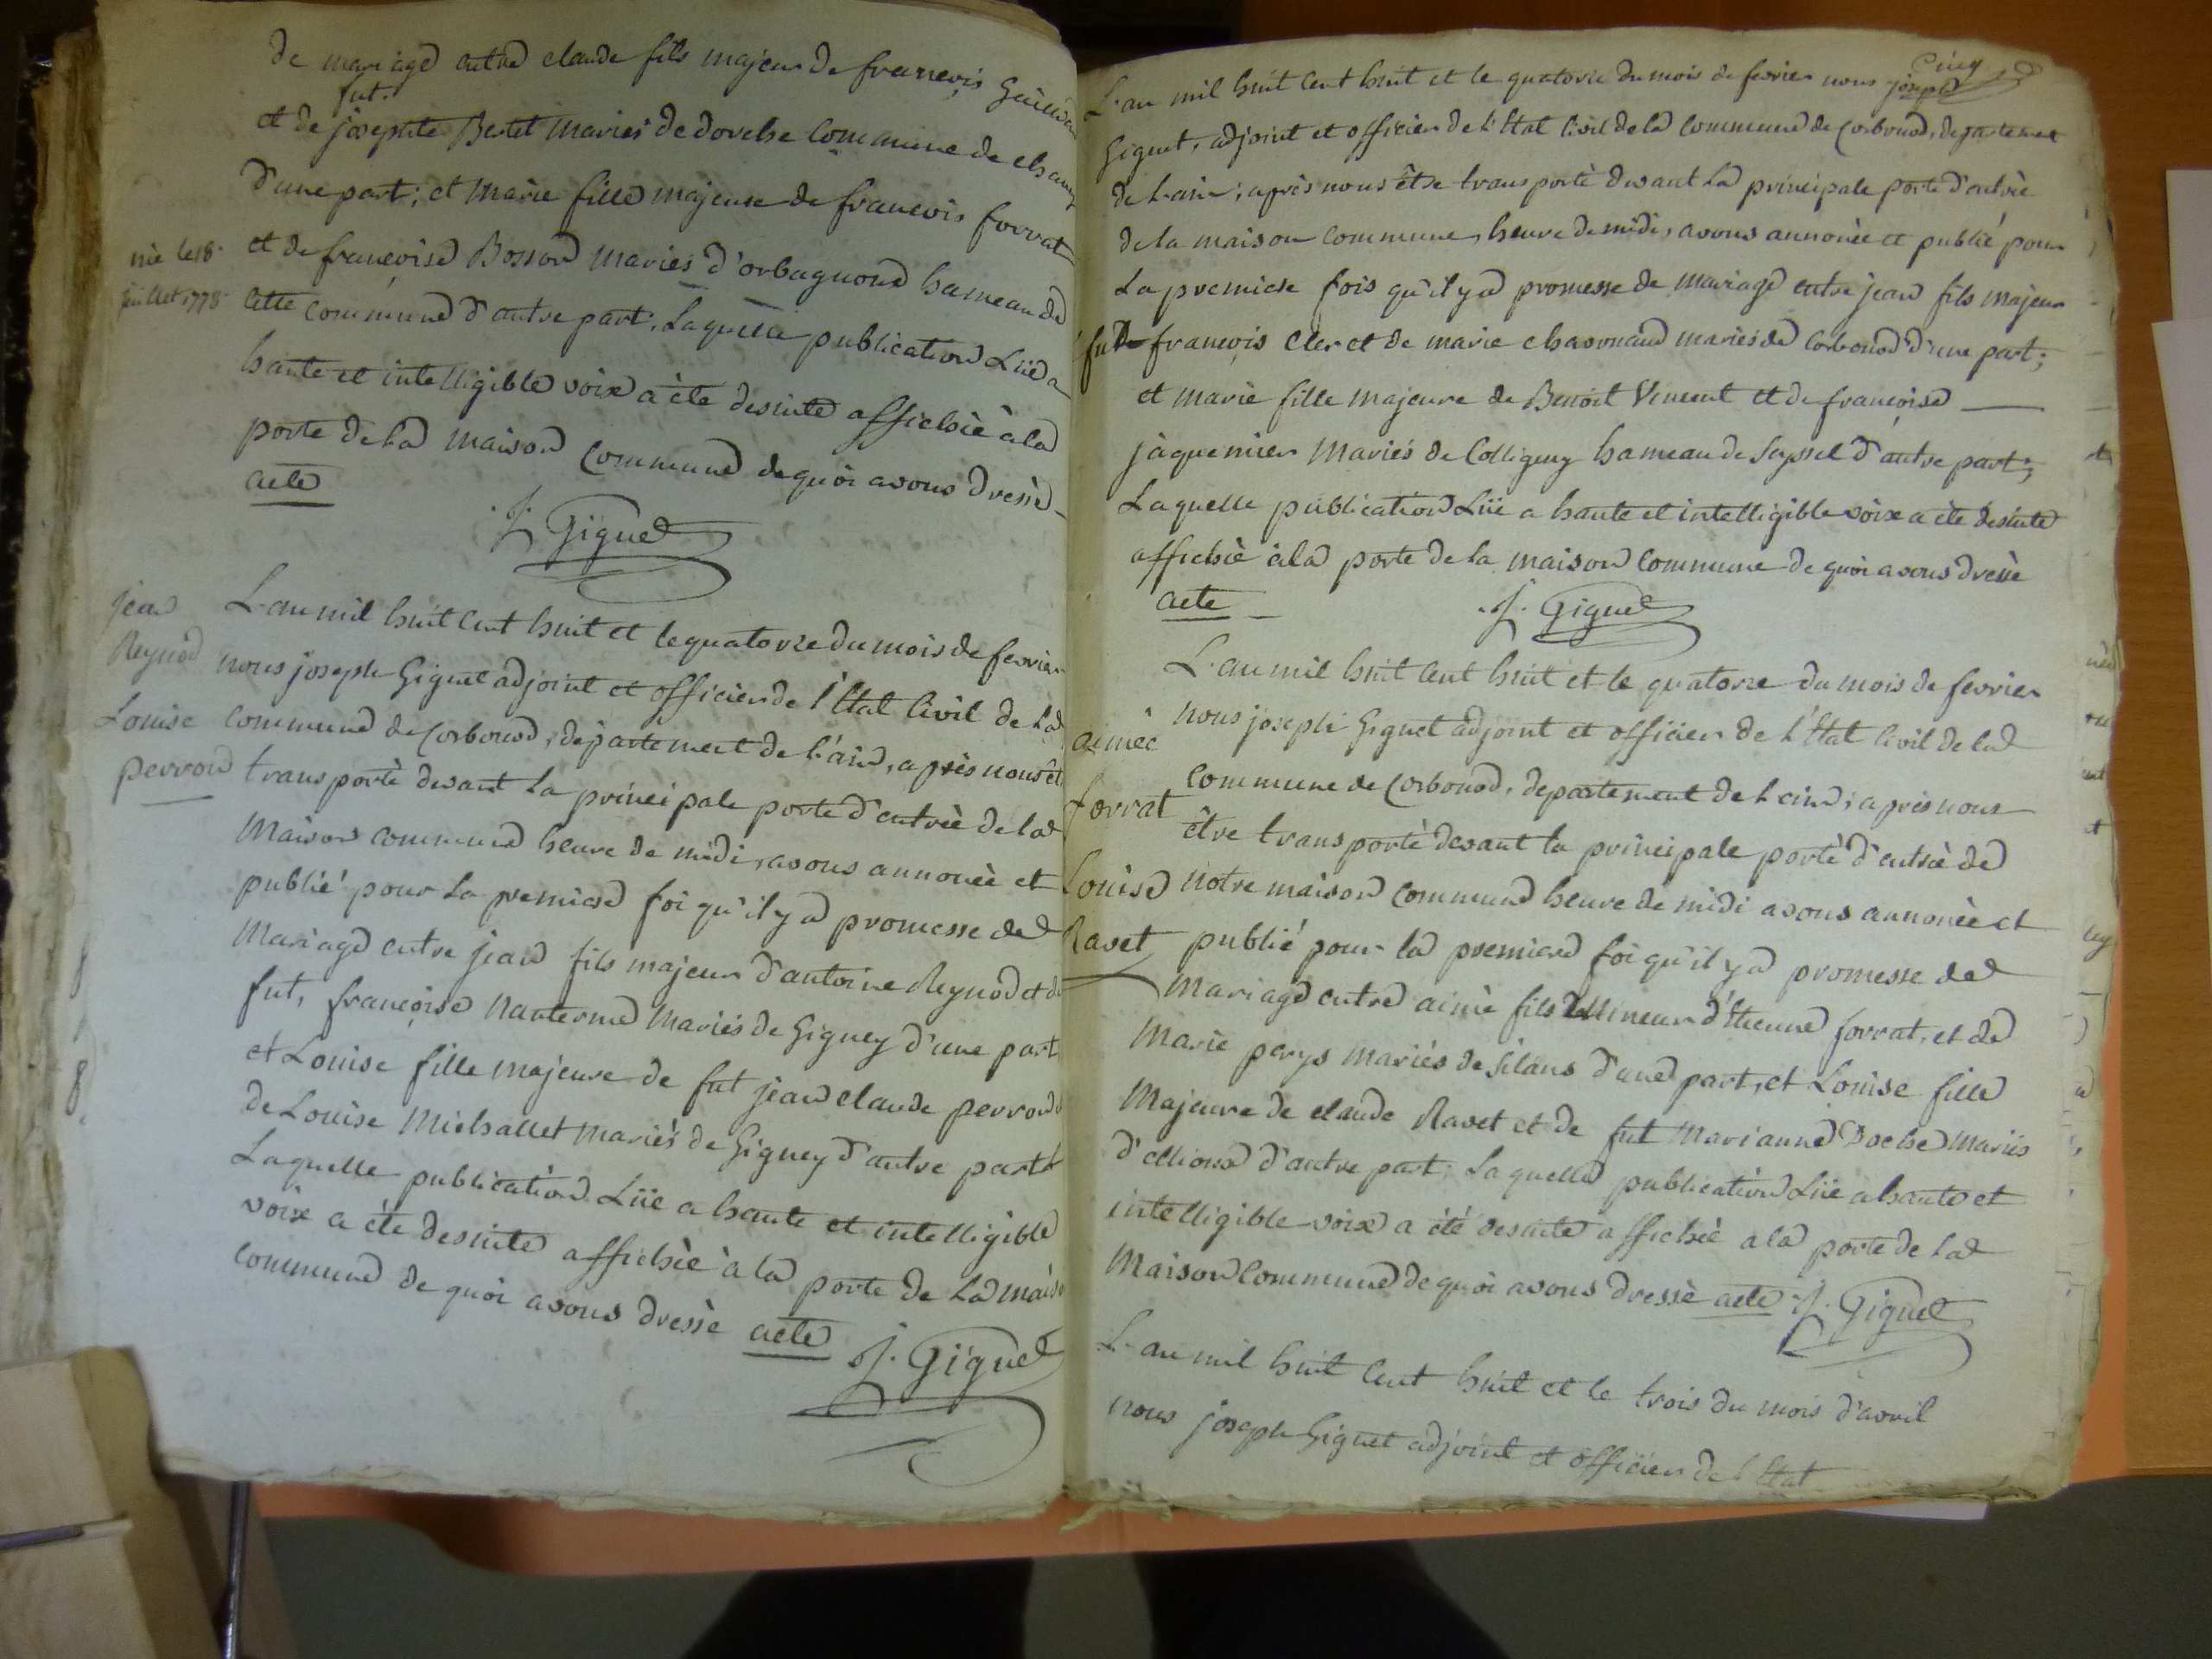 de mariage entre claude fils majeur de francois
fut.
et de josephte Bertet mariés de dorche commune de
d'une part; et marie fille majeure de francois forrat
et de francoise Bosson mariés d'orbagnoud hameau de
née le 18
juillet 1778
cette commune d'autre part. Laquelle publication Lüe a
haute et intelligible voix a èté desuite affichée à la
porte de la maison commune de quoi avons dressè
acte
J. Giguet
jean
Reynod
Louise
perron
L'an mil huit cent huit et le quatorze du mois de fevrier
nous joseph Giguet adjoint et officier de l'Etat Civil de la
commune de Corbonod, departement de l'ain, après nous
transportè devant la principale porte d'entrée de la
Maison commune heure de midi, avons annoncè et
publié pour la premiere foi qu'il y a promesse de
Mariage entre jean fils majeur d'antoine Reynod et de
fut, francoise Nanterme Mariés de Gigney d'une part
et Louise fille majeure de fut jean claude perron
de Louise Michallet mariés de Gigney d'autre part
Laquelle publication Lüe a haute et intelligible
voix a èté desuite affichèe à la porte de la
commune de quoi avons dressè acte
J. Giguet
Cinq
L'an mil huit cent huit et le quatorze du mois de fevrier nous joseph
Giguet, adjoint et officier de l'Etat Civil de la commune de Corbonod, departement
de l'ain; après nous être transportè devant la principale porte d'entrée
de la maison commune, heure de midi, avons annoncè et publié pour
La premiere fois qu'il y a promesse de Mariage entre jean fils majeur
fut de francois Cler et de marie chavonaud mariés de Corbonod d'une part;
et marie fille majeure de Benoit Vincent et de francoise
jaquemier Mariés de Colligny hameau de Seyssel d'autre part;
Laquelle publication Lüe a haute et intelligible voix a èté desuite
affichée à la porte de la maison commune de quoi avons dressè
acte
J. Giguet
aimèe
forrat
Louise
Ravet
L'an mil huit cent huit et le quatorze du mois de fevrier
nous joseph Giguet adjoint et officier de l'Etat Civil de la
commune de Corbonod, departement de l'ain, après nous
être transportè devant la principale porte d'entrée de
Notre maison commune heure de midi avons annoncè et
publié pour la premiere foi qu'il y a promesse de
Mariage entre aimè fils Mineur d'Etienne forrat, et de
Marie perys mariés de silans d'une part, et Louise fille
Majeure de claude Ravet et de fut Marianne Boche Mariés
d'autre part. Laquelle publication Lüe a haute et
intelligible voix a été desuite affichée a la porte de la
Maison Commune de quoi avons dressè acte J. Giguet
L'an mil huit cent huit et le trois du mois d'avril
nous joseph Giguet adjoint et officier de l'Etat